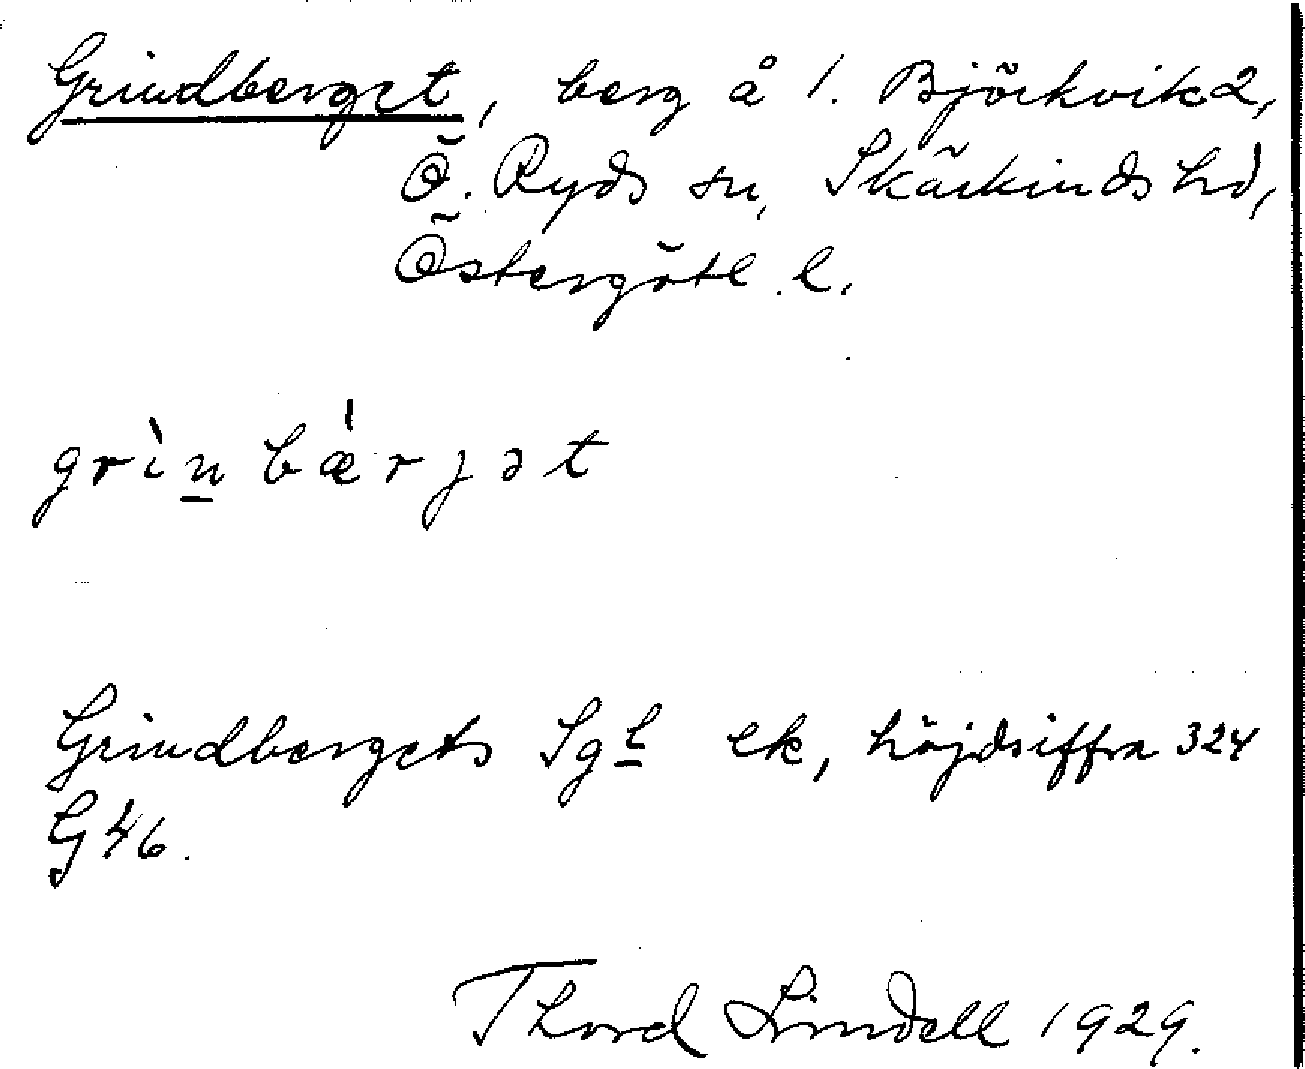 Grindberget, berg å 1. Björkvik 2,
Ö. Ryds sn, Skärkinds hd,
Östergötl. l.
grìn bǽrjət
Grindbergets Sgl ek, höjdsiffra 324
G46.
Thord Lindell 1929.